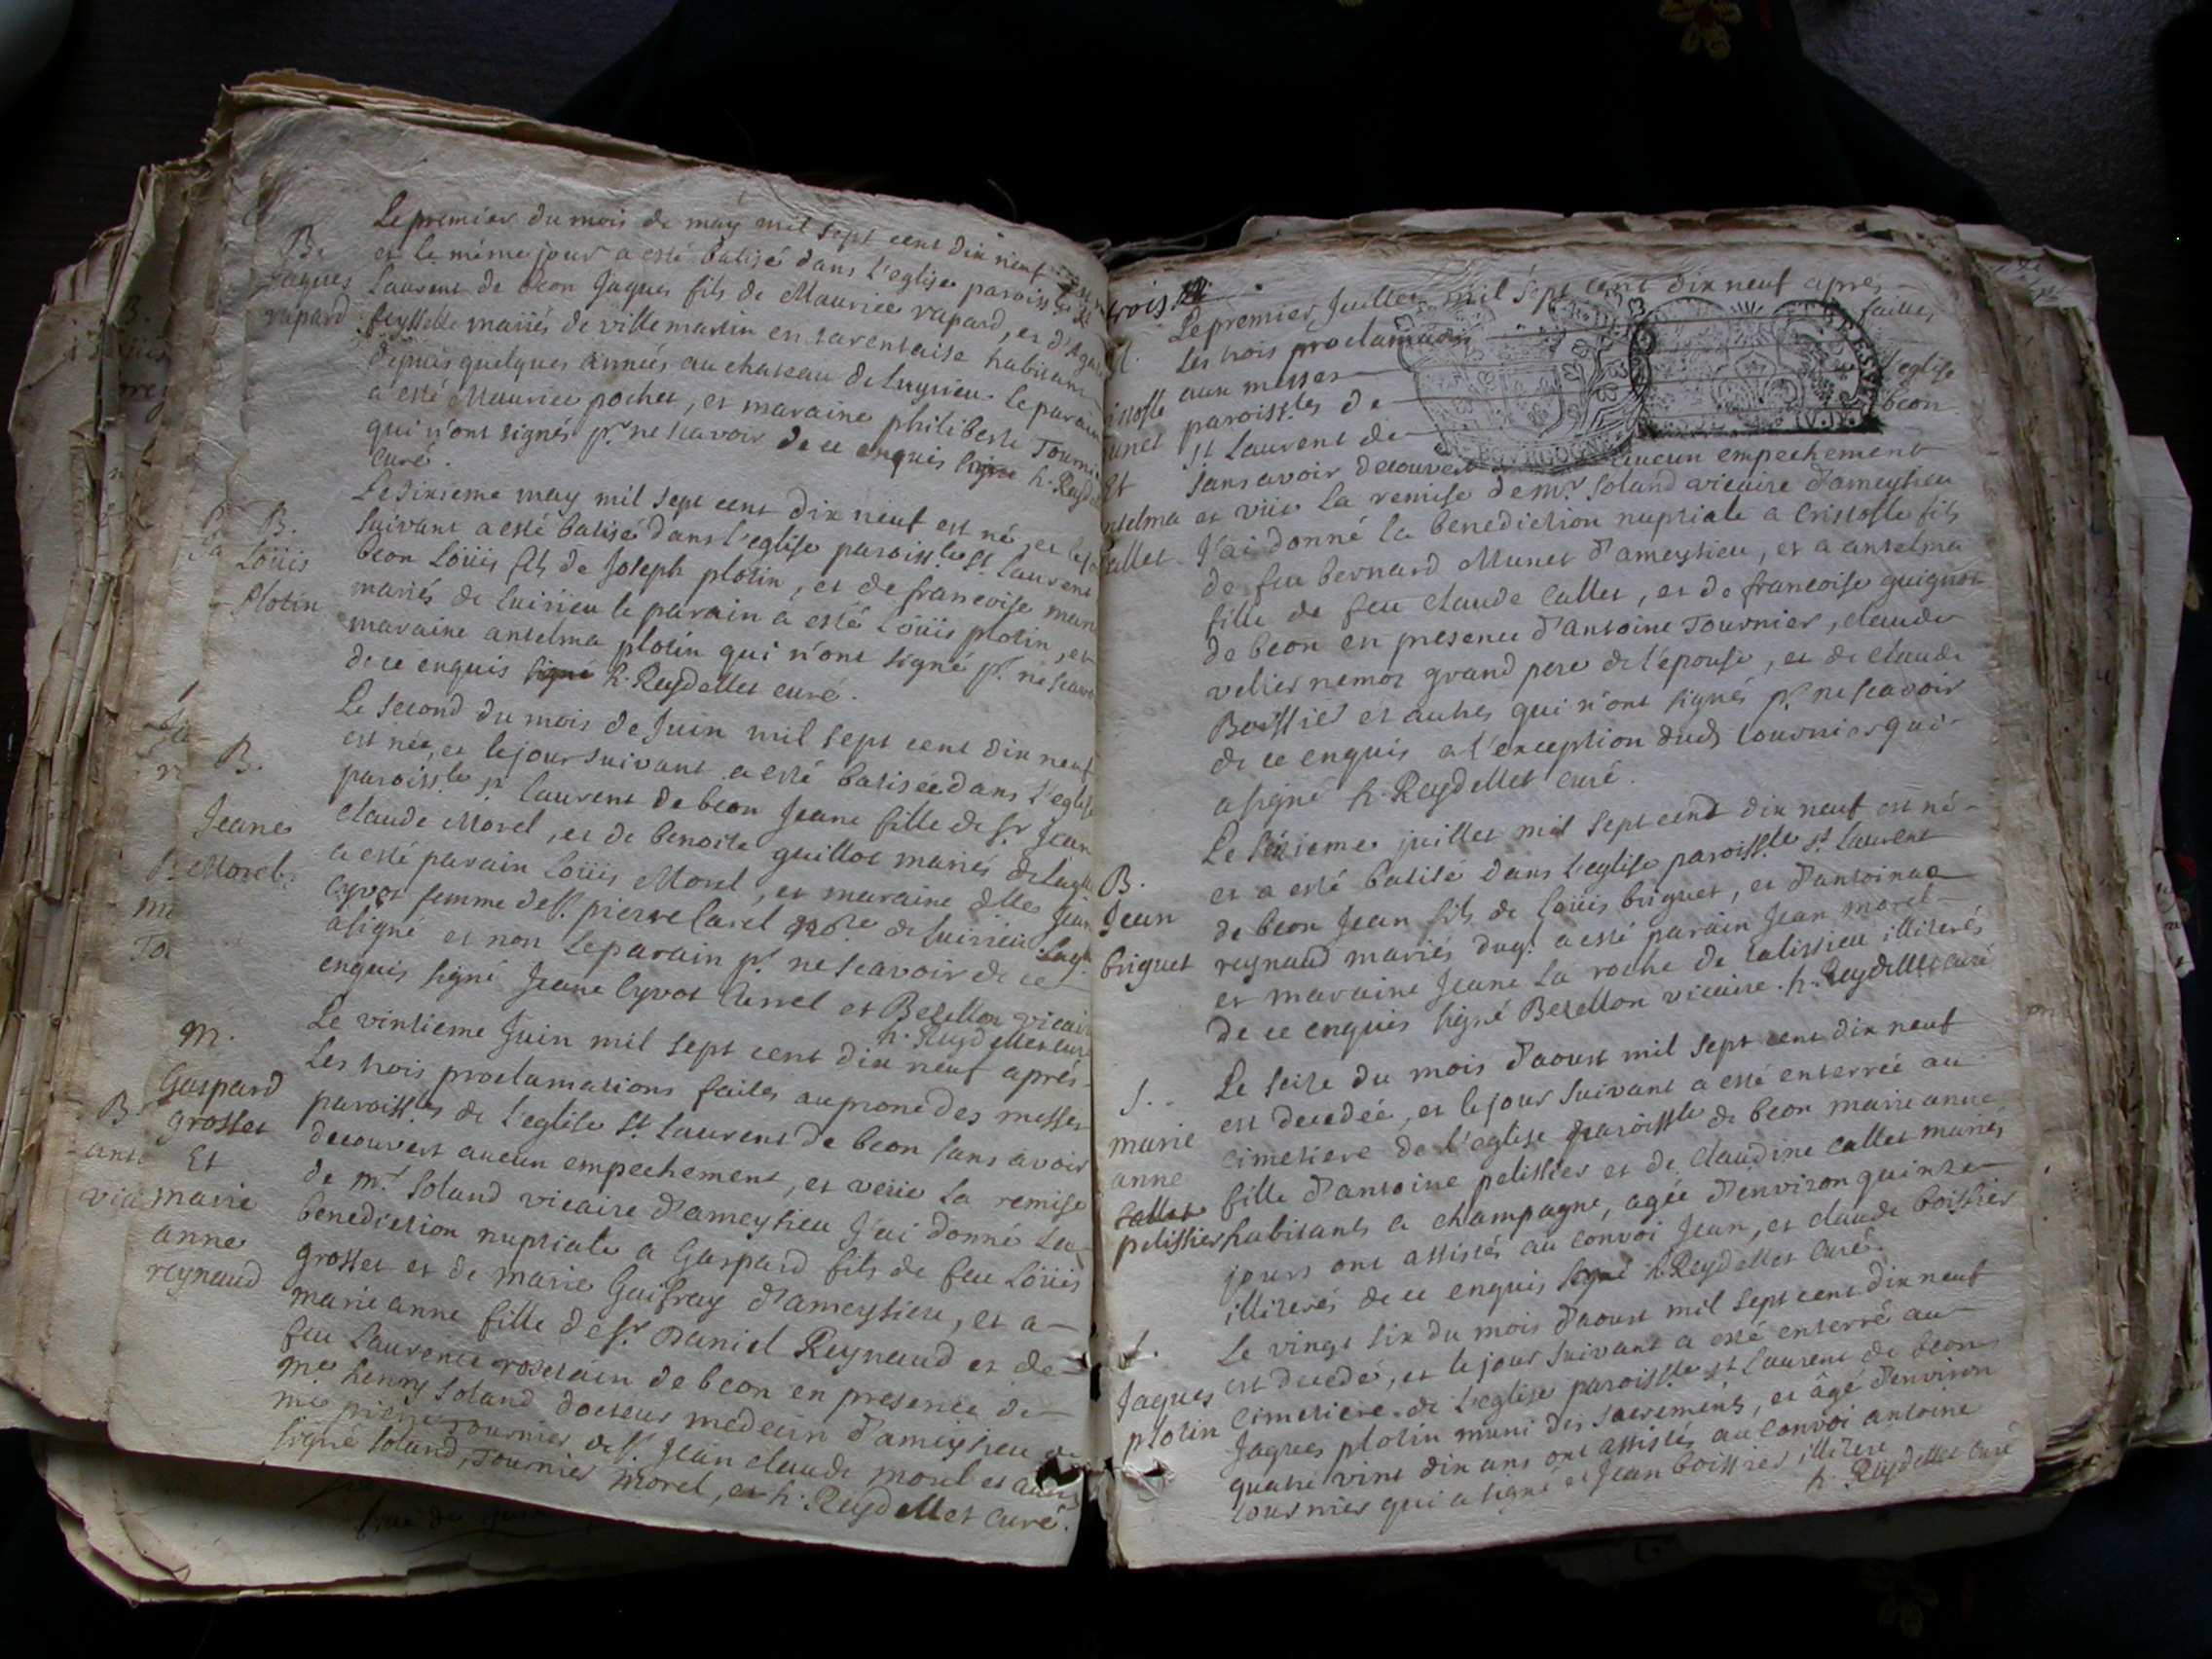 Le premier du mois de may mil sept cent dix neuf
B.
et le même jour a esté batisé dans l'eglise paroiss.le St
Jaques
Laurent de beon Jaques fils de Maurice rapard, et d'Agat
rapard
feysselle mariés de ville martin en tarentaise habitant
depuis quelques années au chateau de luyrieu. le parain
a esté Maurice pochet, et maraine philiberte Tourni
qui n'ont signés p.r ne scavoir de ce enquis signé h. Reyd
curé.
Le sixieme may mil sept cent dix neuf est né, et le jo
B.
suivant a esté batisé dans l'eglise paroiss.le St. Laurent
Loüis
beon Loüis fils de Joseph plotin, et de francoise mun
Plotin
mariés de luirieu le parain a esté Loüis plotin, et
maraine antelma plotin qui n'ont signé p.r ne scavo
de ce enquis signé h. Reydellet curé.
Le second du mois de Juin mil sept cent dix neuf
B.
est née, et le jour suivant a esté batisée dans l'eglise
paroiss.le St laurent de beon Jeane fille de Sr Jean
Jeane
Claude Morel, et de benoite guillot mariés de
Morel
a esté parain Loüis Morel, et maraine dlle Jean
Cyvot femme de Sr. pierre Carel de luirieu
a signé et non le parain p.r ne scavoir de ce
enquis signé Jeane Cyvot et Besellon vicair
h. Reydellet curé
Le vintieme Juin mil sept cent dix neuf aprés
M.
Les trois proclamations faites au prone des messes
Gaspard
paroiss.les de l'eglise St. Laurent de beon sans avoir
grosset
decouvert aucun empechement, et veüe la remise
Et
de mr. Soland vicaire d'ameysieu J'ai donné la
marie
benediction nuptiale a Gaspard fils de feu Loüis
anne
grosset et de marie Guifray d'ameysieu, et a
reynaud
marie anne fille de Sr. Daniel Reynaud et de
feu Laurence de beon en presence de
me henry Soland docteur medecin d'ameysieu de
me pierre Tournier de Sr. Jean claude morel et autres
signé Soland, Tournier morel, et h. Reydellet curé.
trois
Le premier Juillet mil sept cent dix neuf aprés
Les trois proclamations faites
aux messes l'eglise
istofle
paroiss.les de beon
unet
St Laurent de
Et
sans avoir decouvert aucun empechement
ntelma
et vüe la remise de mr. Soland vicaire d'ameysieu
allet
J'ai donné la benediction nuptiale a Cristofle fils
de feu bernard Munet d'ameysieu, et a antelma
fille de feu Claude Callet, et de francoise guignet
de beon en presence d'antoine Tournier, claude
velier nemoz grand pere de l'epouse, et de claude
Boissier et autres qui n'ont signés p.r ne scavoir
de ce enquis a l'exception dud. tournier qui
a signé h. Reydellet curé.
Le sixieme juillet mil sept cent dix neuf est né
B.
et a esté batisé dans l'eglise paroiss.le St. Laurent
Jean
de beon Jean fils de Loüis briguet, et d'antoinae
briguet
reynaud mariés dug. a esté parain Jean morel
et maraine Jeane La roche de talissieu illiterés
de ce enquis signé Besellon vicaire. h. Reydellet curé
Le seize du mois d'aoust mil sept cent dix neuf
S.
est decedée, et le jour suivant a esté enterrée au
marie
cimetiere de l'eglise paroiss.le de beon marie anne
anne
fille d'antoine pelissier et de claudine callet mariés
callet
pelissier
habitants a champagne, agée d'environ quinze
jours ont assistés au convoi Jean, et claude boissier
illiterés de ce enquis signé h. Reydellet curé.
Le vingt six du mois d'aoust mil sept cent dix neuf
S.
est decedé, et le jour suivant a esté enterré au
Jaques
cimetiere de l'eglise paroiss.le St Laurent de beon
plotin
Jaques plotin muni des sacrements, et âgé d'environ
quatre vint dix ans ont assistés au convoi antoine
tournier qui a signé et Jean boissier illiteré
h. Reydellet curé